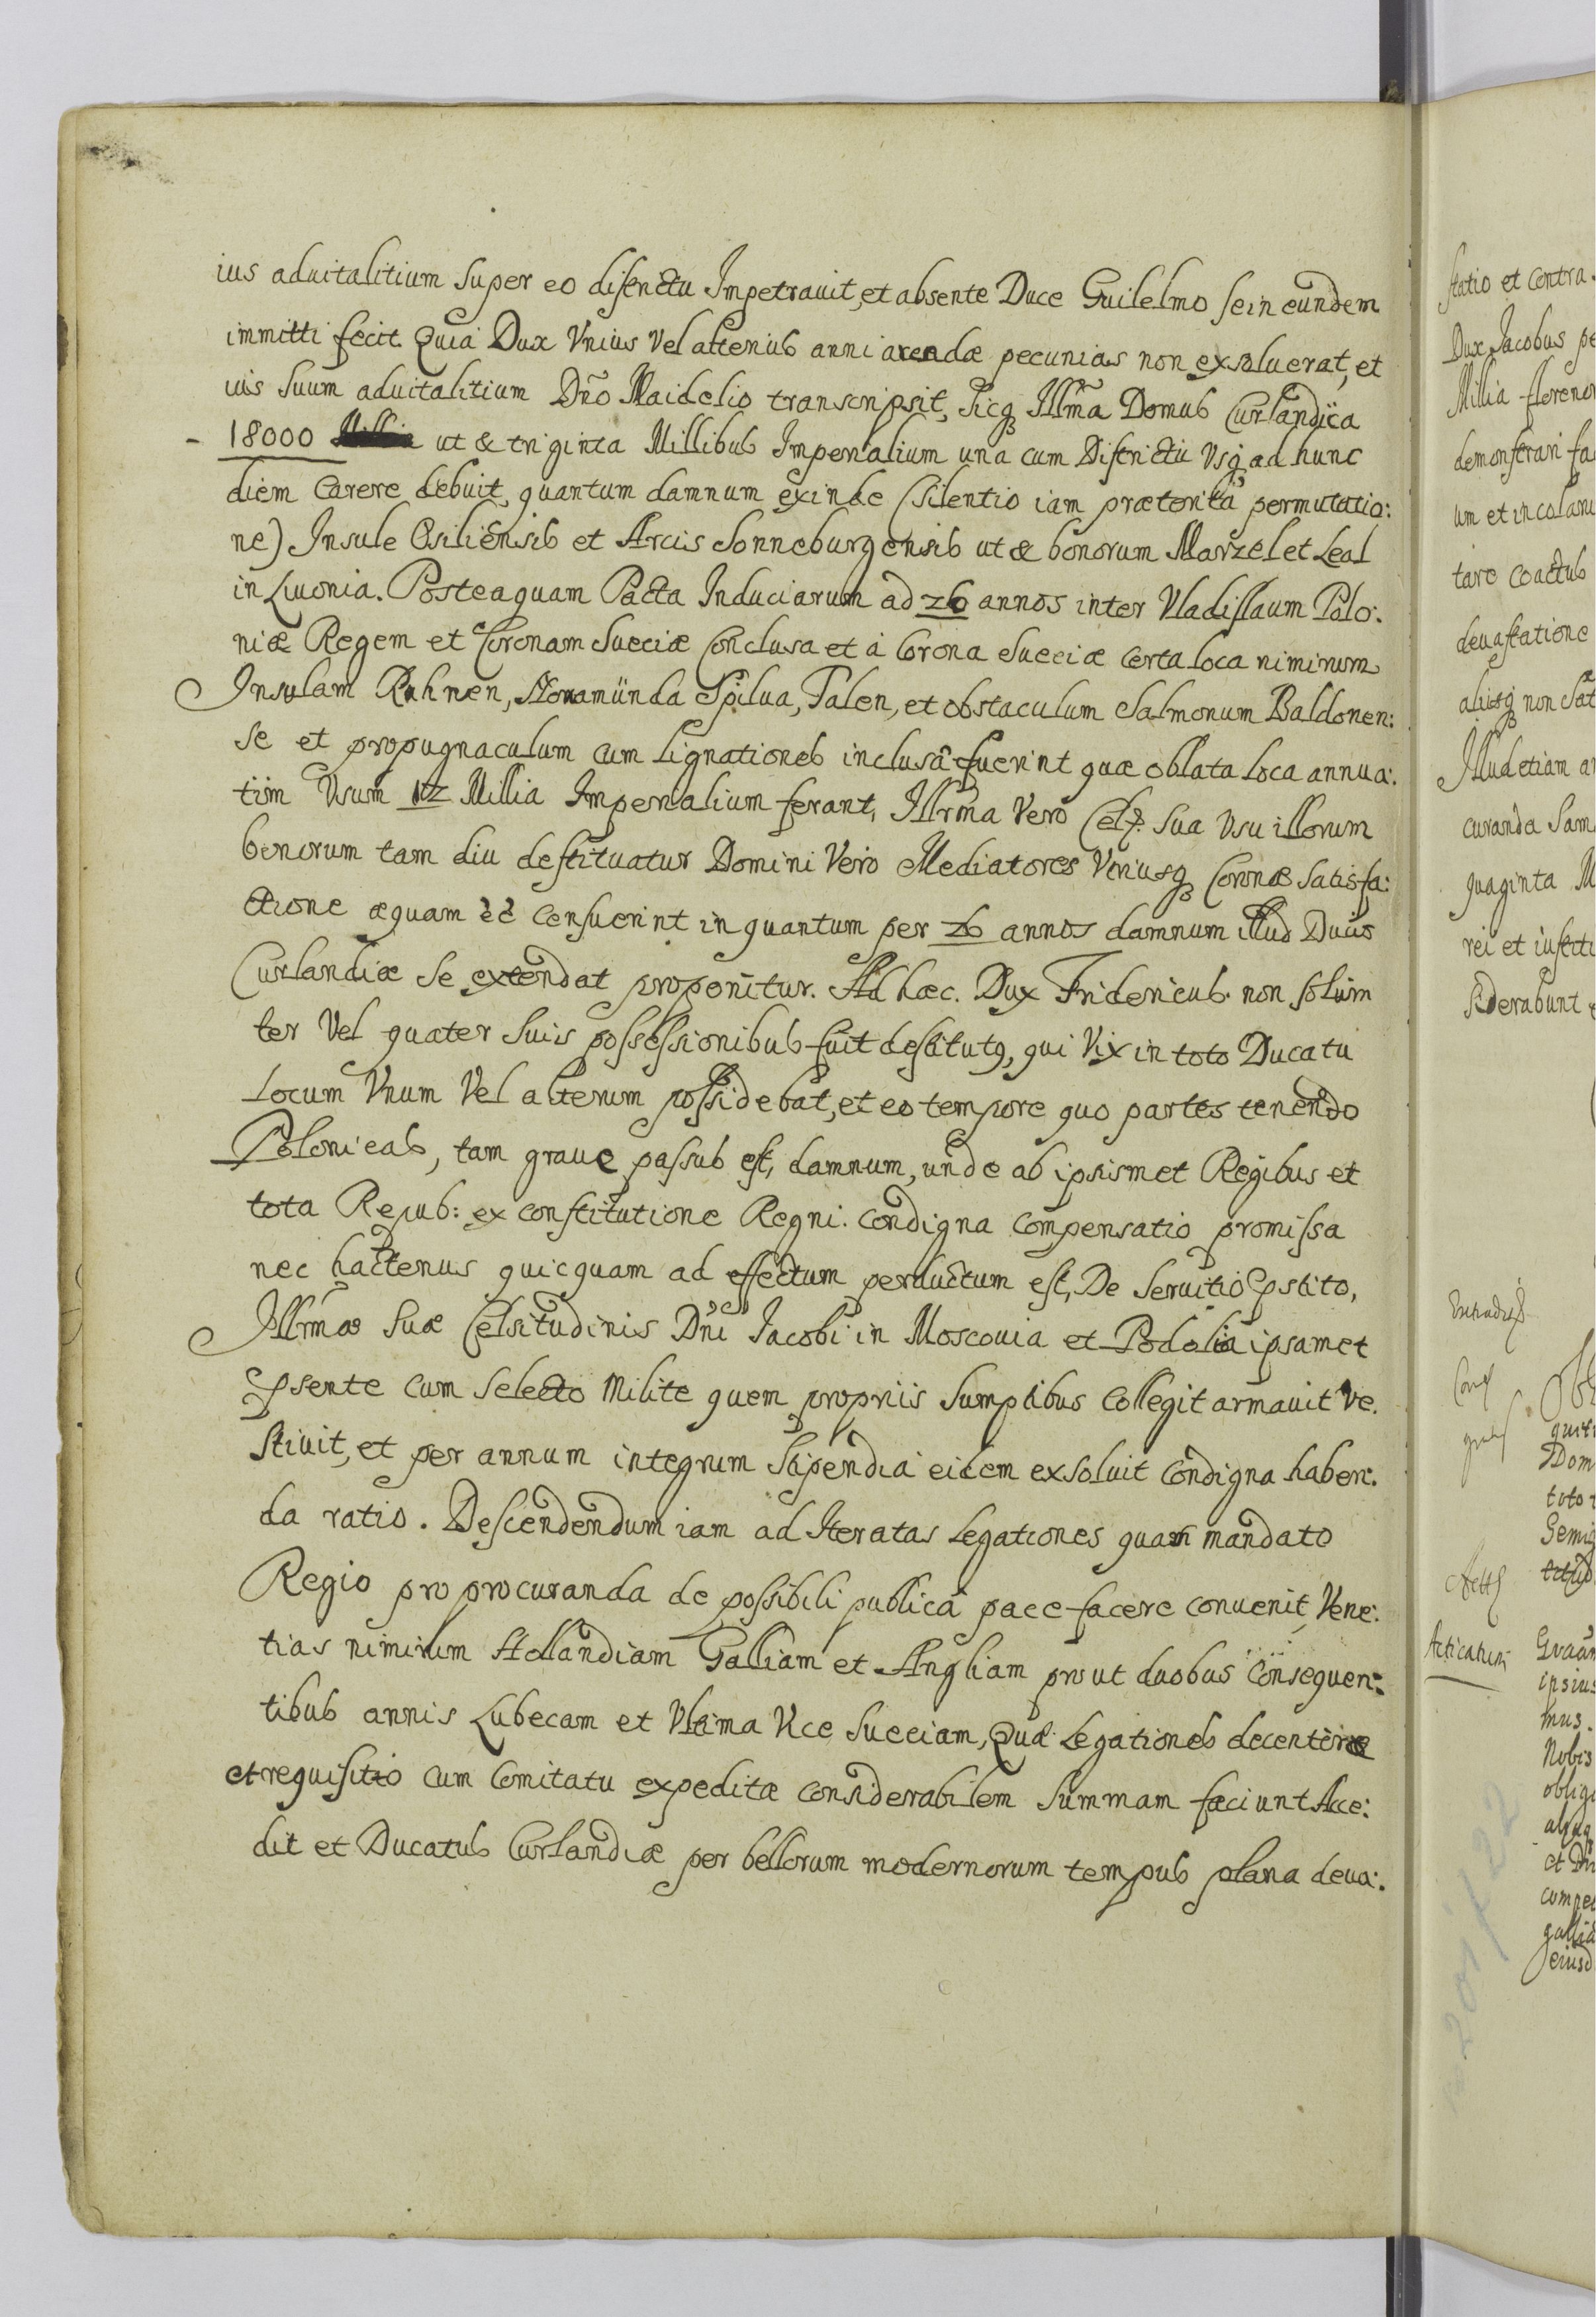 ius aduitalitium super eo districtu Impetrauit, et absente Duce Guilelmo se in eundem
immitti fecit. Quia Dux Vnius Vel alterius anni arendæ pecunias non exsoluerat, et
ius suum aduitalitium Dño Maidelio transcripsit, sicq Illma Domus Curlandica
- 18000 ut & triginta Millibus Imperialium una cum Districtu Vsq ad hunc
diem Carere debuit, quantum damnum exinde (silentio iam præterita permutatio:
ne) Insule Osiliensis et Arcis Sonneburgensis ut & bonorum Marzel et Leal
in Liuonia. Posteaquam Pacta Induciarum ad 26 annos inter Vladislaum Polo:
niæ Regem et Coronam Sueciæ Conclusa et à Corona Sueciæ Certa loca nimirum
Insulam Ruhnen, Spilua, Falen, et obstaculum Salmonum Baldonen:
se et propugnaculum cum lignationes inclusa fuerint quæ oblata loca annua:
tim Vsum 12 Millia Imperialium ferant, Illrma Vero Cels. Sua Vsu illorum
bonorum tam diu destituatur Domini Vero Mediatores Vtriusq Coronæ satisfa:
ctione æquam censuerint in quantum per 26 annos damnum illud Ducis
Curlandiæ se extendat proponitur. Ad hæc. Dux Fridericus non solum
ter Vel quater suis possessionibus fuit destitutq, qui Vix in toto Ducatu
Locum Vnum Vel alterum possidebat, et eo tempore quo partes tenendo
Polonicas, tam graue passus est, damnum, unde ab ipsismet Regibus et
tota Repub: ex constitutione Regni. condigna compensatio promissa
nec hactenus quicquam ad effectum perductum est, De Seruitio Pstito,
Illrmæ Suæ Celsitudinis Dñi Jacobi in Moscouia et Podolia ipsamet
Psente cum selecto Milite quem propriis Sumptibus Collegit armauit Ve.
stiuit, et per annum integrum Stipendia eidem exsoluit condigna haben:
da ratio. Descendendum iam ad Iteratas Legationes quam mandato
Regio pro procuranda de possibili publicâ pace facere conuenit, Vene:
tias nimirum Hollandiam Galliam et Angliam prout duobus consequen:
tibus annis Lubecam et Vltima Vice Sueciam, Quæ Legationes decenter
et requisitio cum Comitatu expeditæ considerabilem Summam faciunt Acce:
dit et Ducatus Curlandiæ per bellorum modernorum tempus plana deua:
statio et contra
Dux Jacobus pe
Millia florenor
demonstrari fa
um et incolaru
tare coactus
deuastatione
aliisq non sat
Illud etiam a
curanda Sam
quaginta M
rei et iusti
siderabunt
quit
Dom
toto
Semig
Acticatum
ipsius
mus.
Nobis
oblig
compe
eiusd